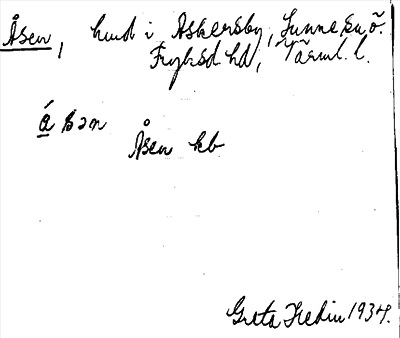 Åsen, hmd i Askersby, Sunne sn, ö.
Fryksd hd, Värml. l.
å sən
Åsen kb
Greta Hedin 1934.